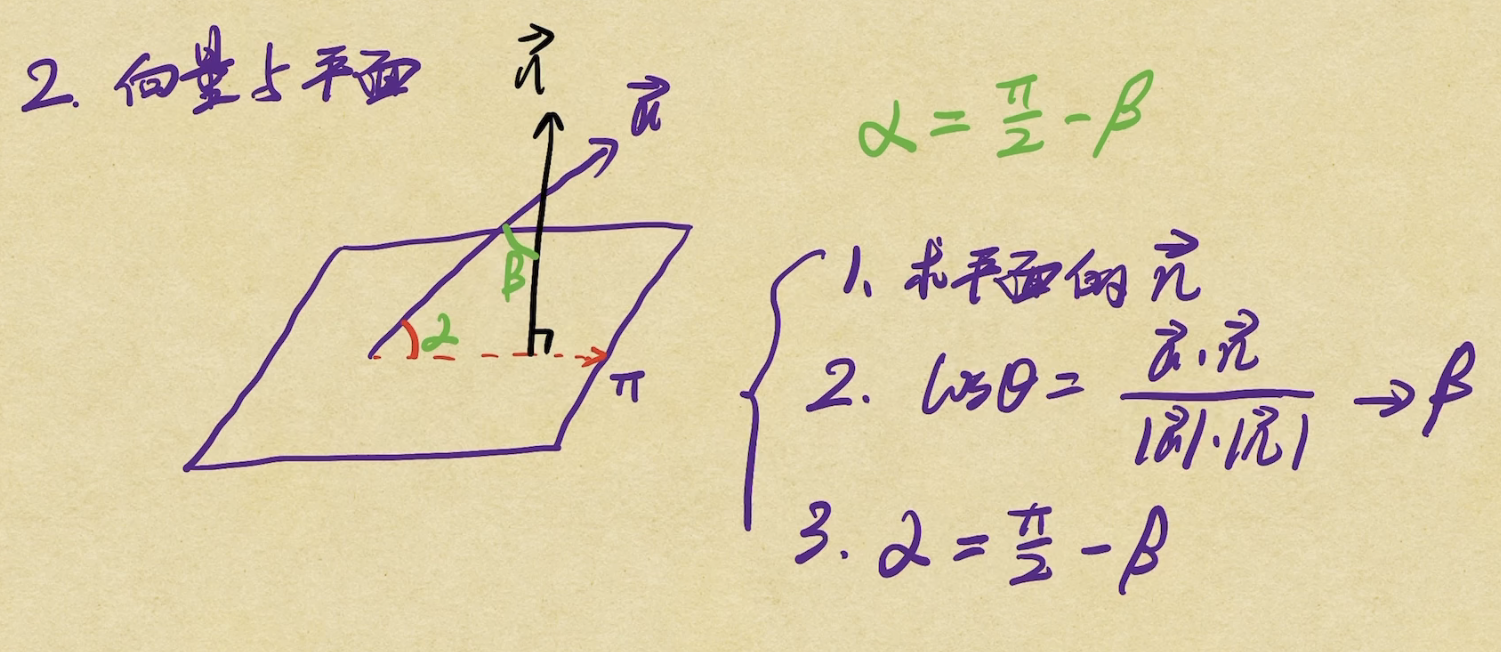 2. 向量与平面
n⃗
a⃗
β
α
π
α = π/2 - β
1、求平面的 n⃗
2. cosθ = a⃗·n⃗ / |a⃗|·|n⃗| → β
3. α = π/2 - β